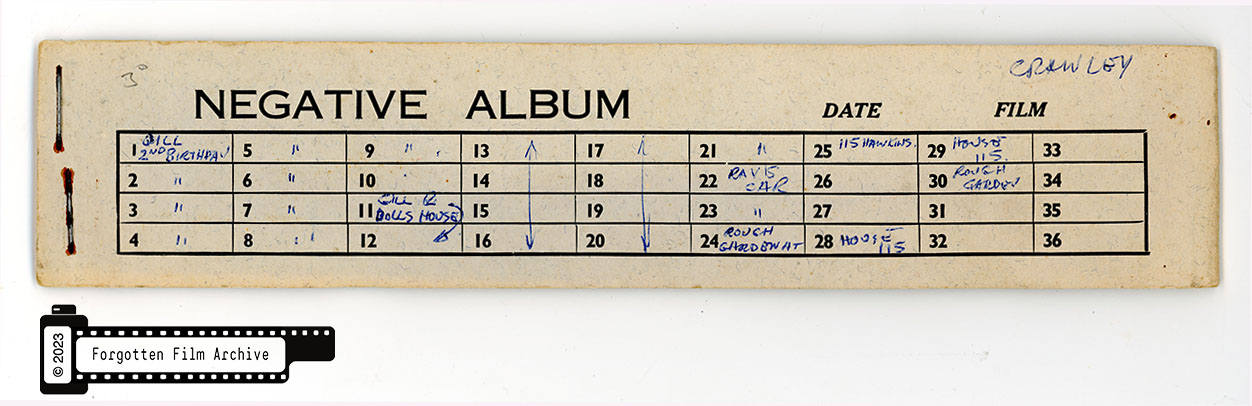 3°
CRAWLEY
NEGATIVE ALBUM DATE FILM
1 GILL 2ND BIRTHDAY 5 " 9 " 13 17 21 " 25 115 HAWKINS. 29 HOUSE 115. 33
2 " 6 " 10 14 18 22 RAY'S CAR 26 30 ROUGH GARDEN 34
3 " 7 " 11 GILL & DOLLS HOUSE 15 19 23 " 27 31 35
4 " 8 " 12 16 20 24 ROUGH GARDEN AT 28 HOUSE 115 32 36
© 2023
Forgotten Film Archive